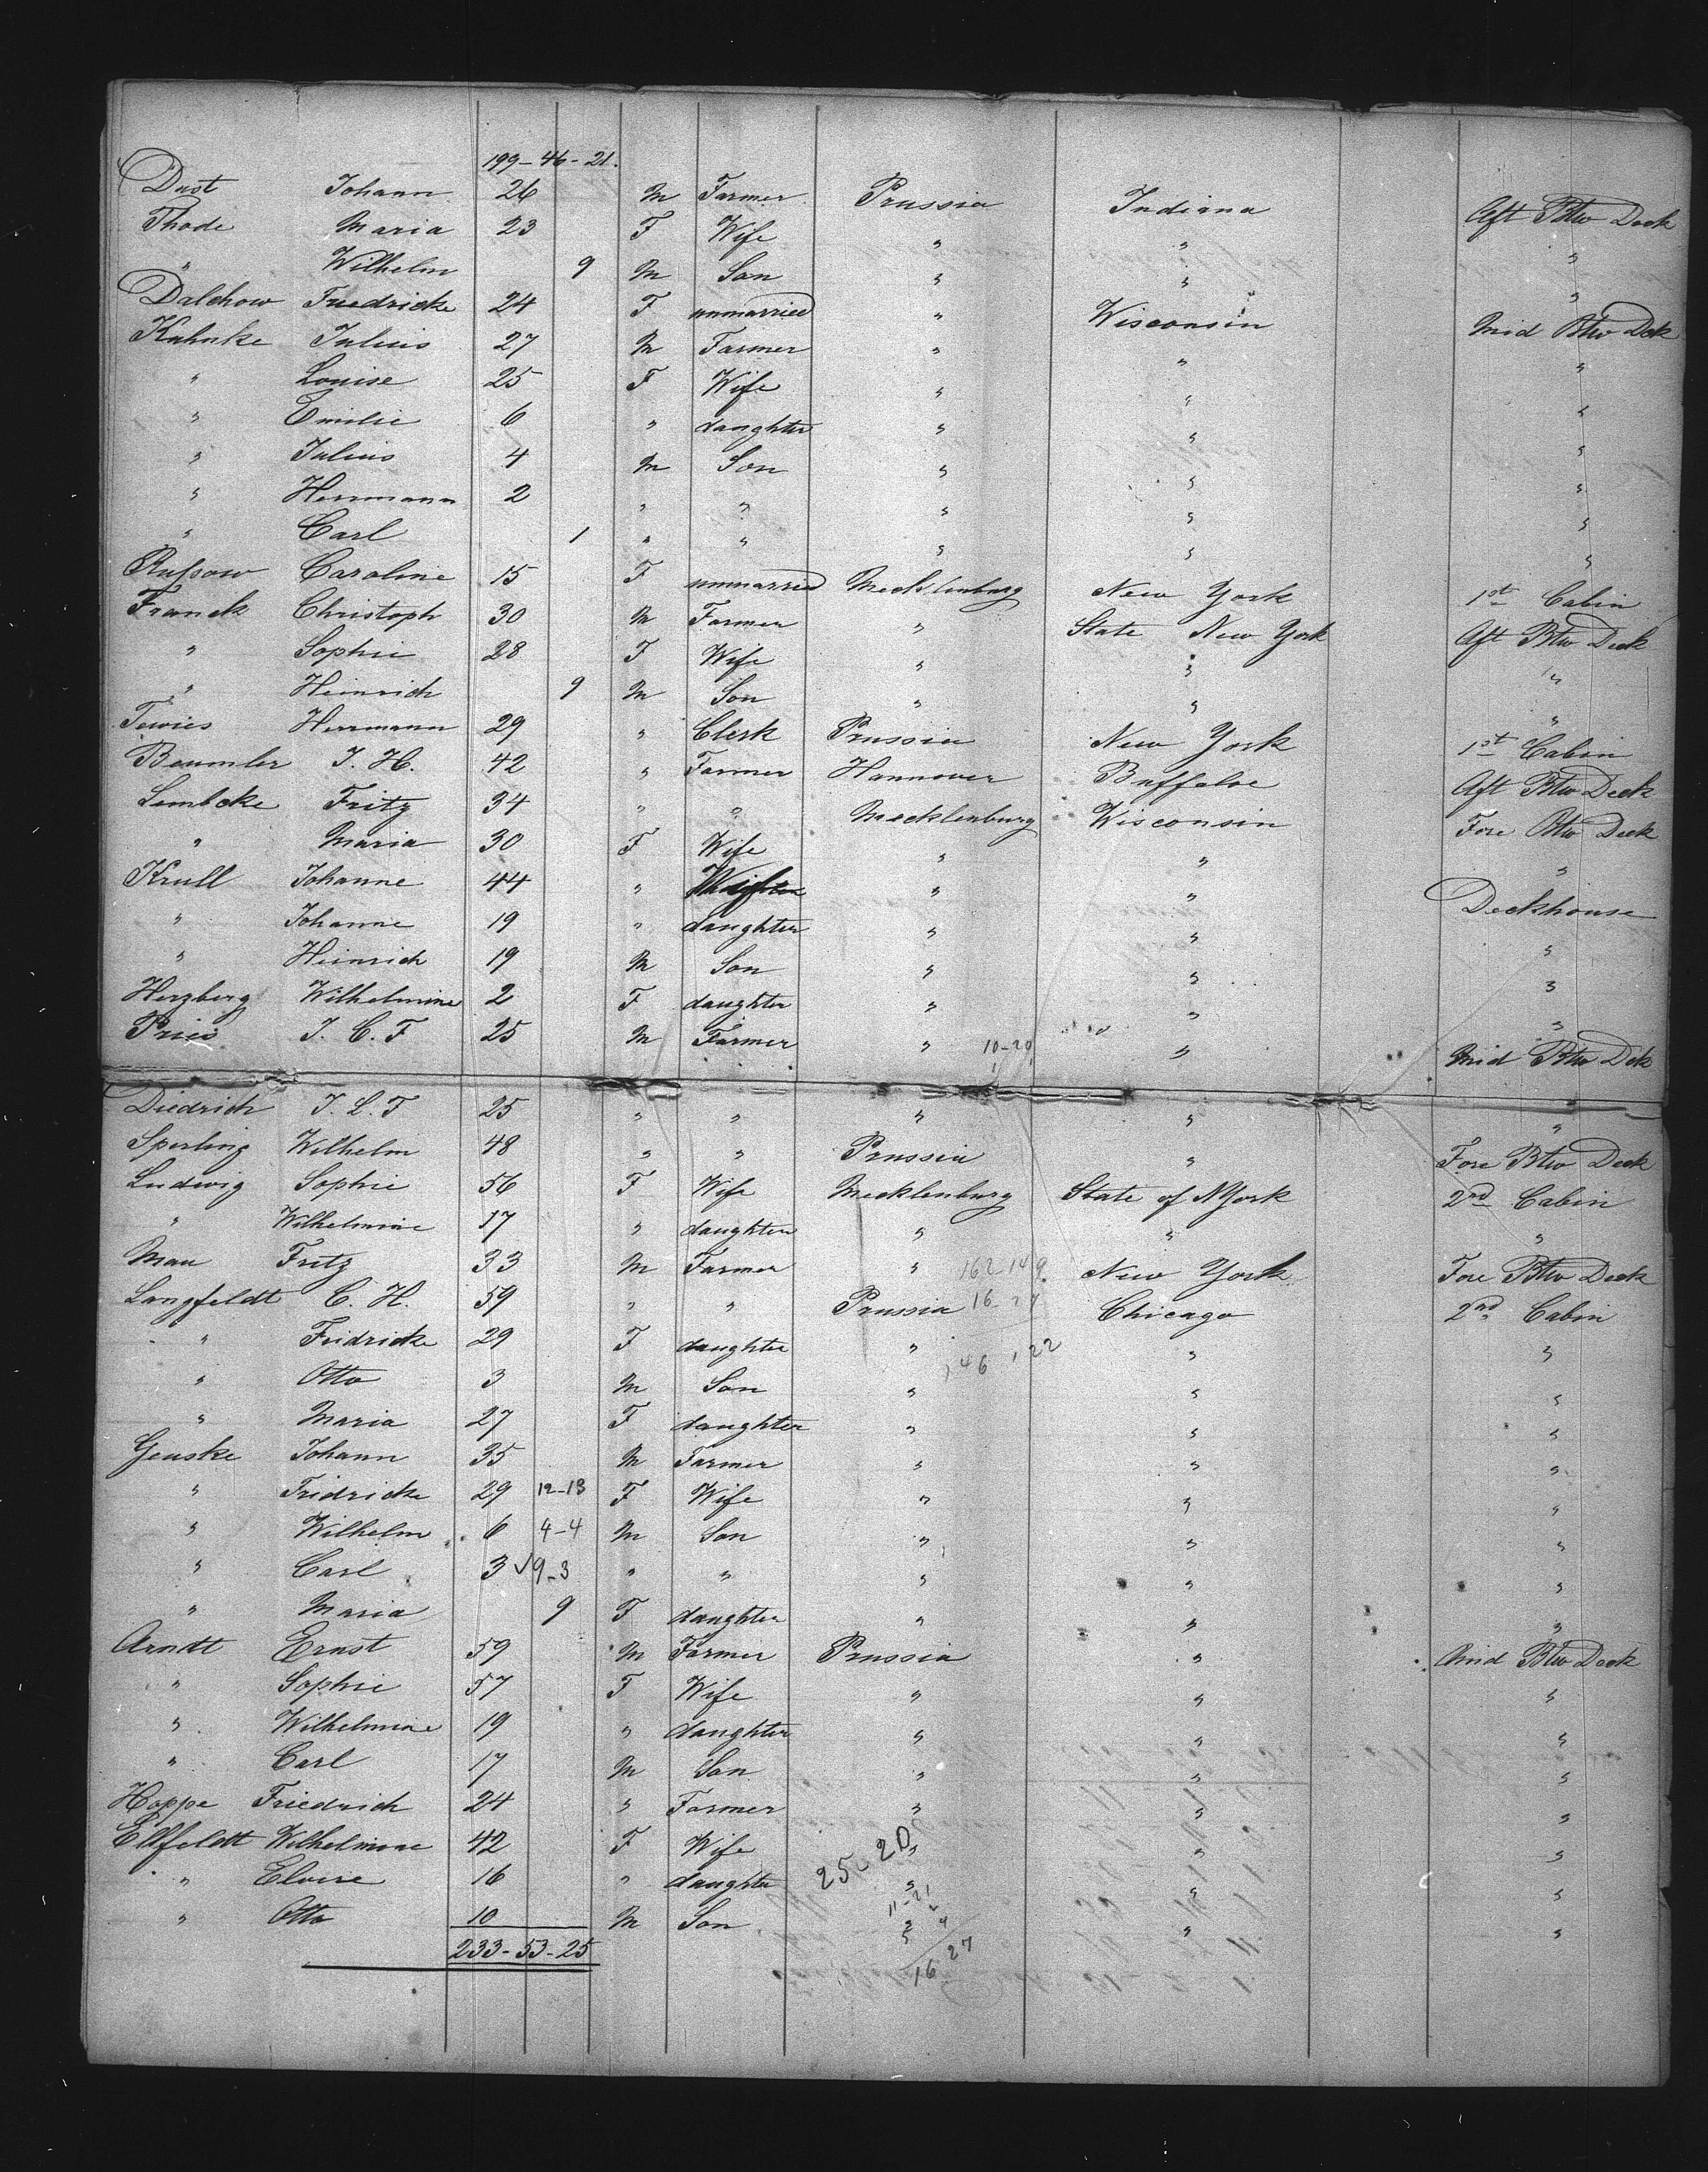 199-46-21.
Dust Johann 26 M Farmer Prussia Indiana Aft Btw Deck
Thode Maria 23 F Wife " " "
" Wilhelm 9 M Son " " "
Dalchow Friedricke 24 F unmarried " Wisconsin Mid Btw Dek
Kuhnke Julius 27 M Farmer " " "
" Louise 25 F Wife " " "
" Emilie 6 " daughter " " "
" Julius 4 M Son " " "
" Herrmann 2 " " " " "
" Carl 1 " " " " "
Rußow Caroline 15 F unmarried Mecklenburg New York 1st Cabin
Franck Christoph 30 M Farmer " State New York Aft Btw Deck
" Sophie 28 F Wife " " "
" Heinrich 9 M Son " " "
Tewies Herrmann 29 " Clerk Prussia New York 1st Cabin
Beumler J. H. 42 " Farmer Hannover Buffaloe Aft Btw Deck
Lembcke Fritz 34 " " Mecklenburg Wisconsin Fore Btw Deck
" Maria 30 F Wife " " "
Krull Johanne 44 " " " Deckhouse
" Johanne 19 " daughter " " "
" Heinrich 19 M Son " " "
Herzberg Wilhelmine 2 F daughter " " "
Pries J. C. F 25 M Farmer " 10-20 " Mid Btw Dek
Diedrich J. L. F 25 " " " " "
Sperling Wilhelm 48 " " Prussia " Fore Btw Deck
Ludwig Sophie 56 F Wife Mecklenburg State of NYork 2nd Cabin
" Wilhelmine 17 " daughter " " "
Mau Fritz 33 M Farmer " 162-149 New York Fore Btw Deck
Langfeldt C. H. 59 " " Prussia 16-27 Chicago 2nd Cabin
" Fridricke 29 F daughter " 46 22 " "
" Otto 3 M Son " " "
" Maria 27 F daughter " " "
Genske Johann 35 M Farmer " " "
" Fridricke 29 12-13 F Wife " " "
" Wilhelm 6 4-4 M Son " " "
" Carl 3 9-3 " " " " "
" Maria 9 F daughter " " "
Arndt Ernst 59 M Farmer Prussia " Mid Btw Deck
" Sophie 57 F Wife " " "
" Wilhelmine 19 " daughter " " "
" Carl 17 M Son " " "
Hoppe Friedrich 24 " Farmer " " "
Ellfeldt Wilhelmine 42 F Wife " " "
" Eloise 16 " daughter 25 20 " " "
" Otto 10 M Son 11-21 " " "
233-53-25 16 27